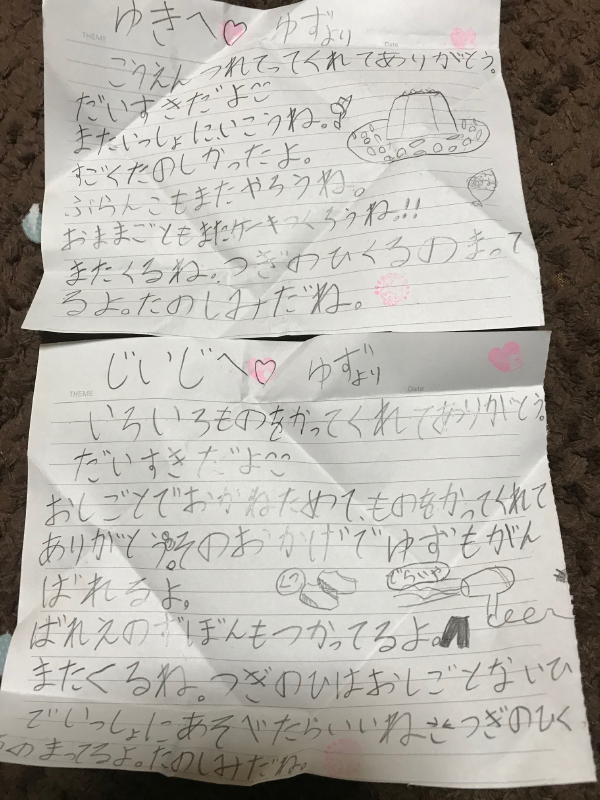 THEME
Date
ゆきへ ゆずより
こうえんつれてってくれてありがとう。
だいすきだよ
またいっしょにいこうね。
すごくたのしかったよ。
ぶらんこもまたやろうね。
おままごともまたケーキつくろうね。!!
またくるね。つぎのひくるのまって
るよ。たのしみだね。
じいじへ ゆずより
THEME
Date
いろいろものをかってくれてありがとう。
だいすきだよ
おしごとでおかねためて、ものをかってくれて
ありがとう。そのおかげでゆずもがん
ばれるよ。
どらいや
ばれえのずぼんもつかってるよ。
またくるね。つぎのひはおしごとないひ
でいっしょにあそべたらいいね つぎのひく
るのまってるよ。たのしみだね。